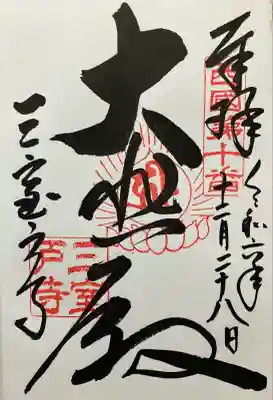 奉拝
令和六年
十二月二十八日
西国第十番
大悲殿
三室戸寺
三室
戸寺